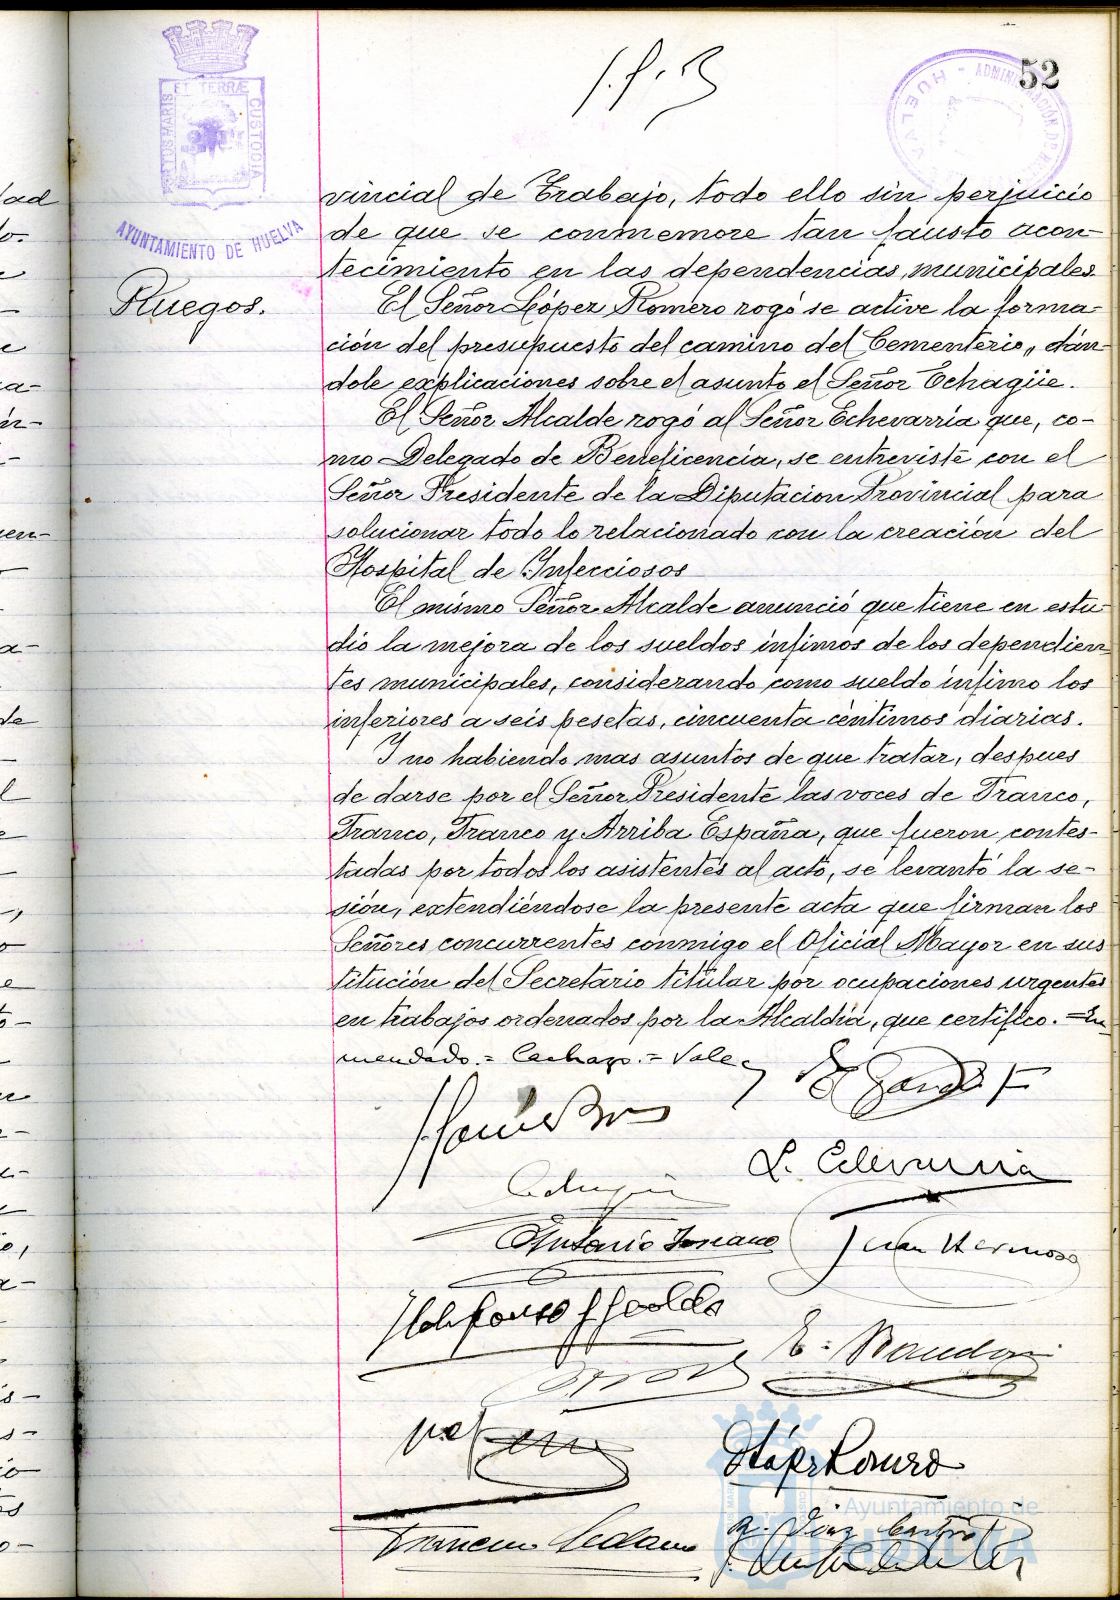 52
PORTUS MARIS ET TERRÆ CUSTODIA
AYUNTAMIENTO DE HUELVA
HUELVA - ADMINISTRACIÓN DE
vincial de Trabajo, todo ello sin perjuicio
de que se conmemore tan fausto acon-
tecimiento en las dependencias municipales.
Ruegos.
El Señor López Romero rogó se active la forma-
ción del presupuesto del camino del Cementerio, dán-
dole explicaciones sobre el asunto el Señor Echagüe.
El Señor Alcalde rogó al Señor Echevarría que, co-
mo Delegado de Beneficencia, se entreviste con el
Señor Presidente de la Diputacion Provincial para
solucionar todo lo relacionado con la creación del
Hospital de Infecciosos
El mismo Señor Alcalde anunció que tiene en estu-
dio la mejora de los sueldos ínfimos de los dependien-
tes municipales, considerando como sueldo ínfimo los
inferiores a seis pesetas, cincuenta céntimos diarias.
Y no habiendo mas asuntos de que tratar, despues
de darse por el Señor Presidente las voces de Franco,
Franco, Franco y Arriba España, que fueron contes-
tadas por todos los asistentes al acto, se levantó la se-
sión, extendiéndose la presente acta que firman los
Señores concurrentes conmigo el Oficial Mayor en sus
titución del Secretario titular por ocupaciones urgentes
en trabajos ordenados por la Alcaldía, que certifico. = En-
mendado. = = Vale
L. Echevarria
Antonio Toscano
Juan Hermoso
Ildefonso
E.
López Romero
Francisco Sedano
Diaz
Ayuntamiento de
HUELVA